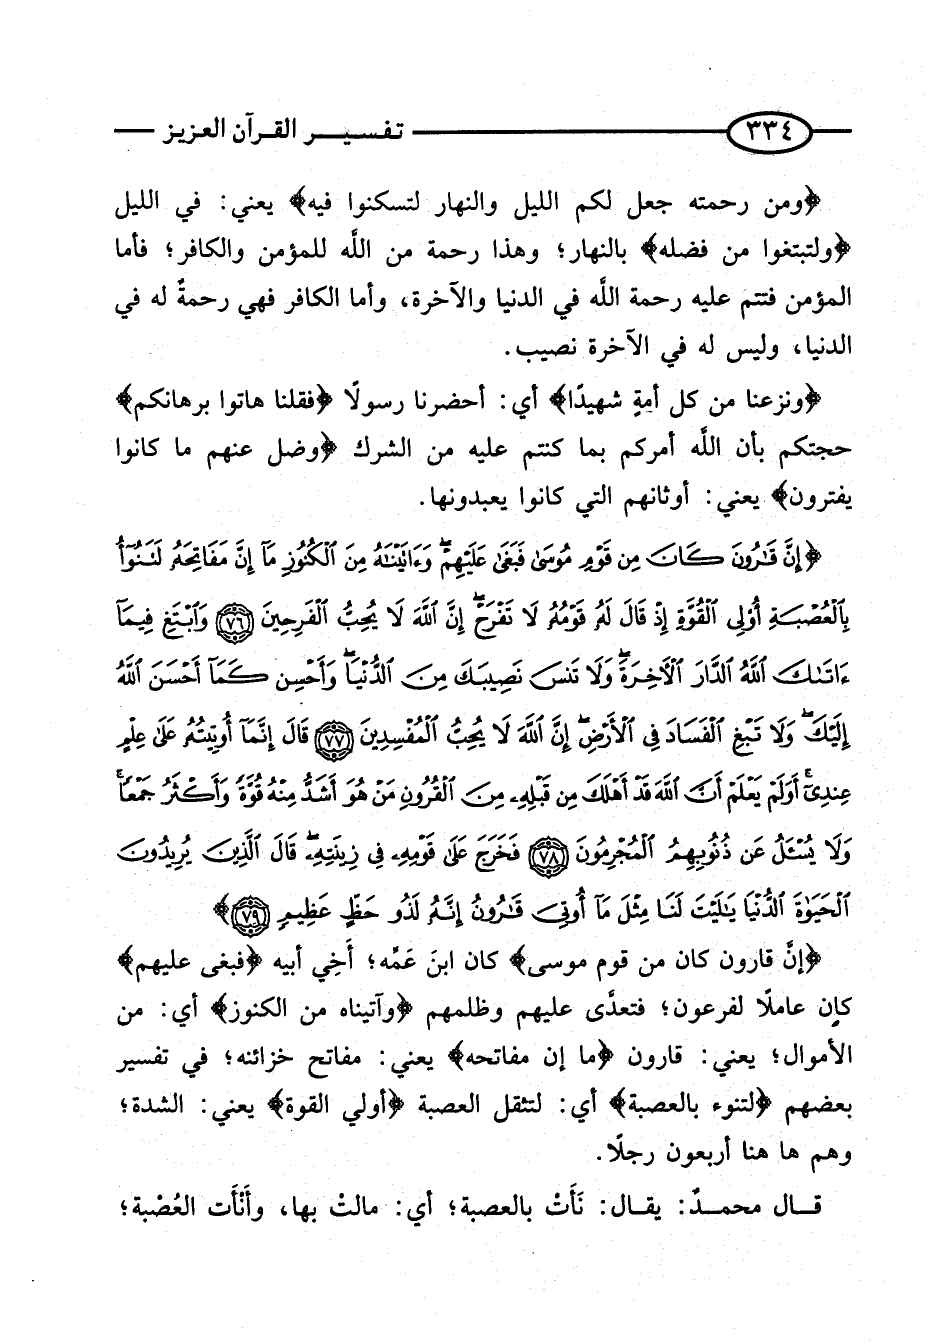 ٣٣٤ تفسير القرآن العزيز
﴿ومن رحمته جعل لكم الليل والنهار لتسكنوا فيه﴾ يعني: في الليل
﴿ولتبتغوا من فضله﴾ بالنهار؛ وهذا رحمة من اللَّه للمؤمن والكافر؛ فأما
المؤمن فتتم عليه رحمة اللَّه في الدنيا والآخرة، وأما الكافر فهي رحمةٌ له في
الدنيا، وليس له في الآخرة نصيب.
﴿ونزعنا من كل أمةٍ شهيدًا﴾ أي: أحضرنا رسولًا ﴿فقلنا هاتوا برهانكم﴾
حجتكم بأن اللَّه أمركم بما كنتم عليه من الشرك ﴿وضل عنهم ما كانوا
يفترون﴾ يعني: أوثانهم التي كانوا يعبدونها.
﴿إِنَّ قَٰرُونَ كَانَ مِن قَوْمِ مُوسَىٰ فَبَغَىٰ عَلَيْهِمْ ۖ وَءَاتَيْنَٰهُ مِنَ ٱلْكُنُوزِ مَآ إِنَّ مَفَاتِحَهُۥ لَتَنُوٓأُ
بِٱلْعُصْبَةِ أُو۟لِى ٱلْقُوَّةِ إِذْ قَالَ لَهُۥ قَوْمُهُۥ لَا تَفْرَحْ ۖ إِنَّ ٱللَّهَ لَا يُحِبُّ ٱلْفَرِحِينَ ٧٦ وَٱبْتَغِ فِيمَآ
ءَاتَىٰكَ ٱللَّهُ ٱلدَّارَ ٱلْءَاخِرَةَ ۖ وَلَا تَنسَ نَصِيبَكَ مِنَ ٱلدُّنْيَا ۖ وَأَحْسِن كَمَآ أَحْسَنَ ٱللَّهُ
إِلَيْكَ ۖ وَلَا تَبْغِ ٱلْفَسَادَ فِى ٱلْأَرْضِ ۖ إِنَّ ٱللَّهَ لَا يُحِبُّ ٱلْمُفْسِدِينَ ٧٧ قَالَ إِنَّمَآ أُوتِيتُهُۥ عَلَىٰ عِلْمٍ
عِندِىٓ ۚ أَوَلَمْ يَعْلَمْ أَنَّ ٱللَّهَ قَدْ أَهْلَكَ مِن قَبْلِهِۦ مِنَ ٱلْقُرُونِ مَنْ هُوَ أَشَدُّ مِنْهُ قُوَّةً وَأَكْثَرُ جَمْعًا ۚ
وَلَا يُسْـَٔلُ عَن ذُنُوبِهِمُ ٱلْمُجْرِمُونَ ٧٨ فَخَرَجَ عَلَىٰ قَوْمِهِۦ فِى زِينَتِهِۦ ۖ قَالَ ٱلَّذِينَ يُرِيدُونَ
ٱلْحَيَوٰةَ ٱلدُّنْيَا يَٰلَيْتَ لَنَا مِثْلَ مَآ أُوتِىَ قَٰرُونُ إِنَّهُۥ لَذُو حَظٍّ عَظِيمٍ ٧٩﴾
﴿إنَّ قارون كان من قوم موسى﴾ كان ابنَ عَمِّه؛ أَخِي أبيه ﴿فبغى عليهم﴾
كان عاملًا لفرعون؛ فتعدَّى عليهم وظلمهم ﴿وآتيناه من الكنوز﴾ أي: من
الأموال؛ يعني: قارون ﴿ما إن مفاتحه﴾ يعني: مفاتح خزائنه؛ في تفسير
بعضهم ﴿لتنوء بالعصبة﴾ أي: لتثقل العصبة ﴿أولي القوة﴾ يعني: الشدة؛
وهم ها هنا أربعون رجلًا.
قال محمدٌ: يقال: نَأَتْ بالعصبة؛ أي: مالتْ بها، وأَنْأَت العُصْبة؛